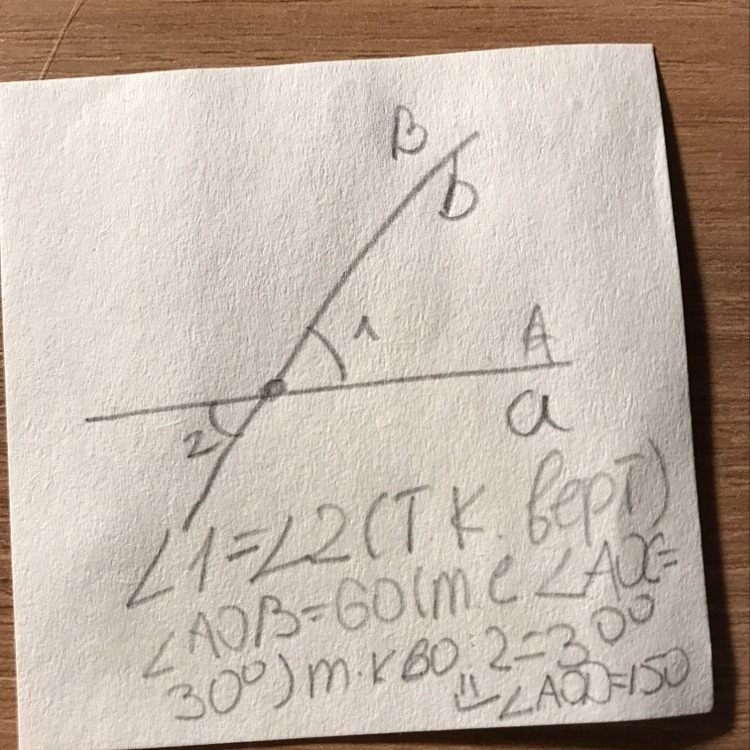 B
b
1
A
a
2
∠1=∠2(Т.К. верт)
∠AOB=60(m.e ∠AOC=
30°)m.к 60:2=30°
∠AOD=150